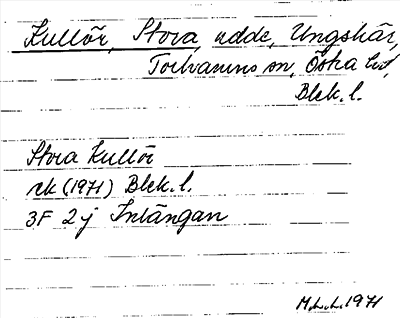 Kullör, Stora, udde, Ungskär,
Torhamns sn, Östra hd,
Blek. l.
Stora Kullör
rk (1971) Blek. l.
3F 2j Inlängan
1971